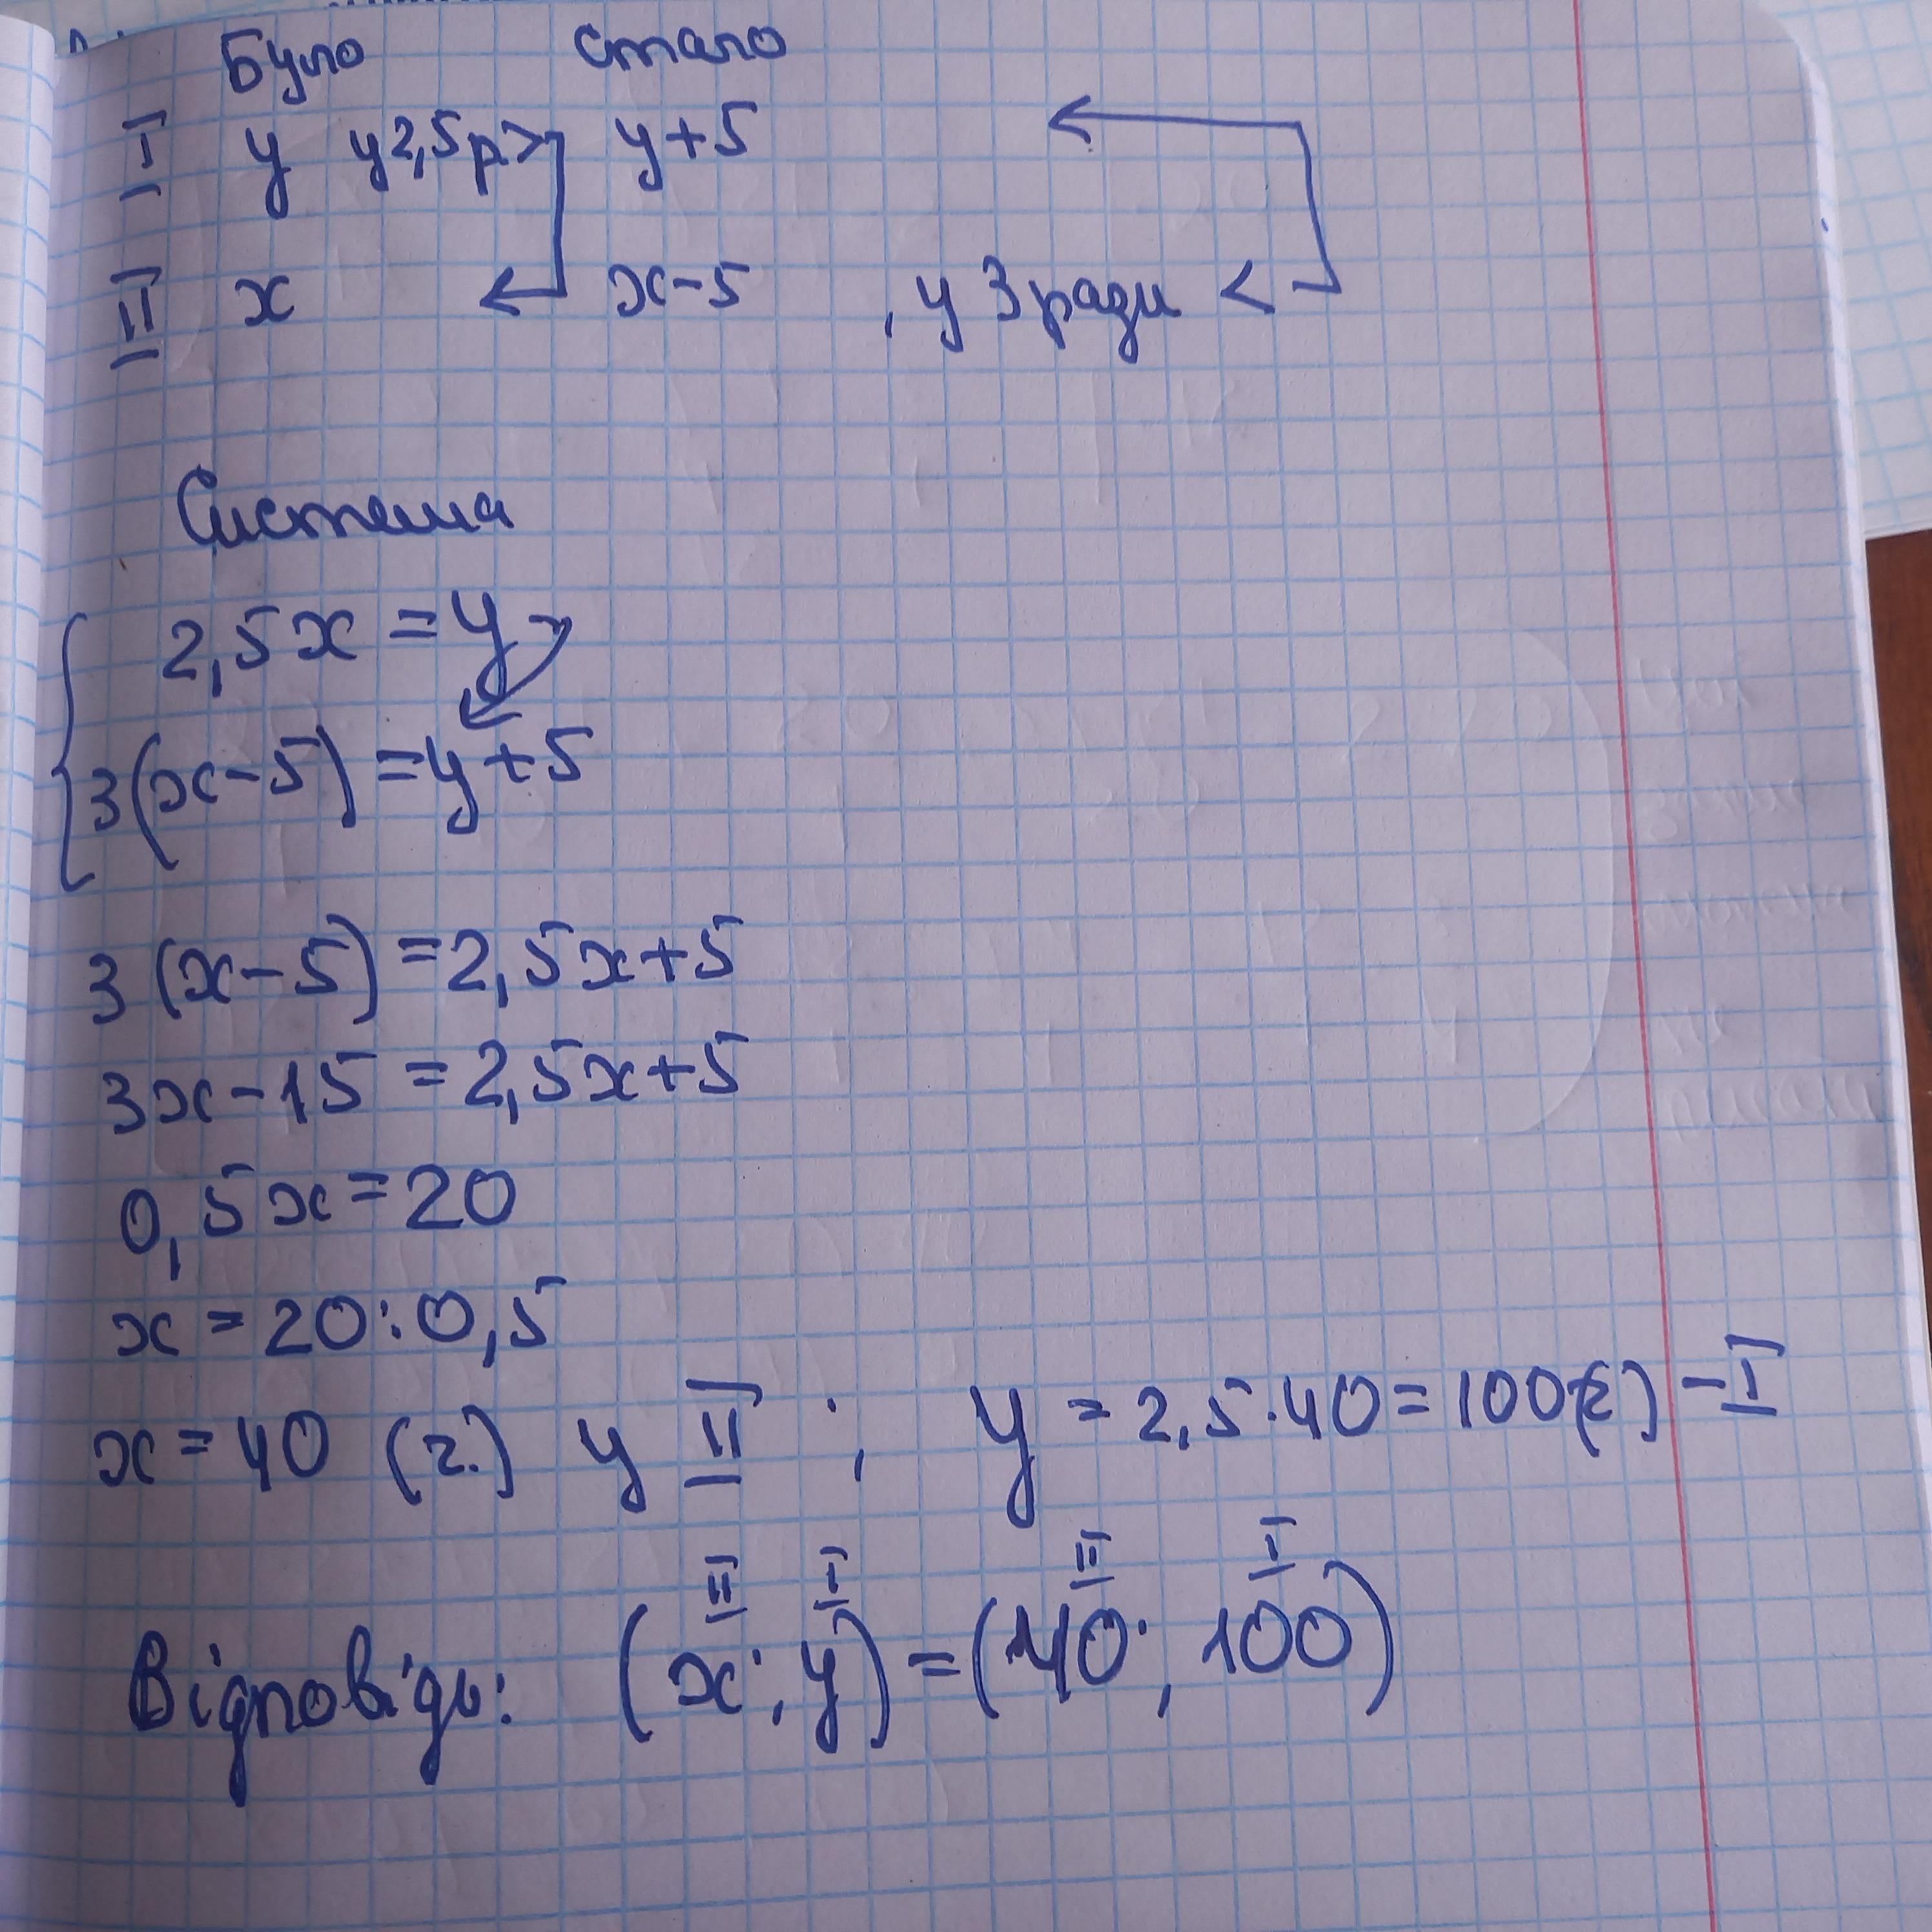 Було стало
I y у 2,5 р > y+5
II x x-5 , у 3 ради <
Система
2,5x = y
3(x-5) = y+5
3(x-5) = 2,5x+5
3x-15 = 2,5x+5
0,5x = 20
x = 20:0,5
x = 40 (г.) у II ; y = 2,5·40 = 100(г) - I
II I II I
Відповідь: (x; y) = (40; 100)